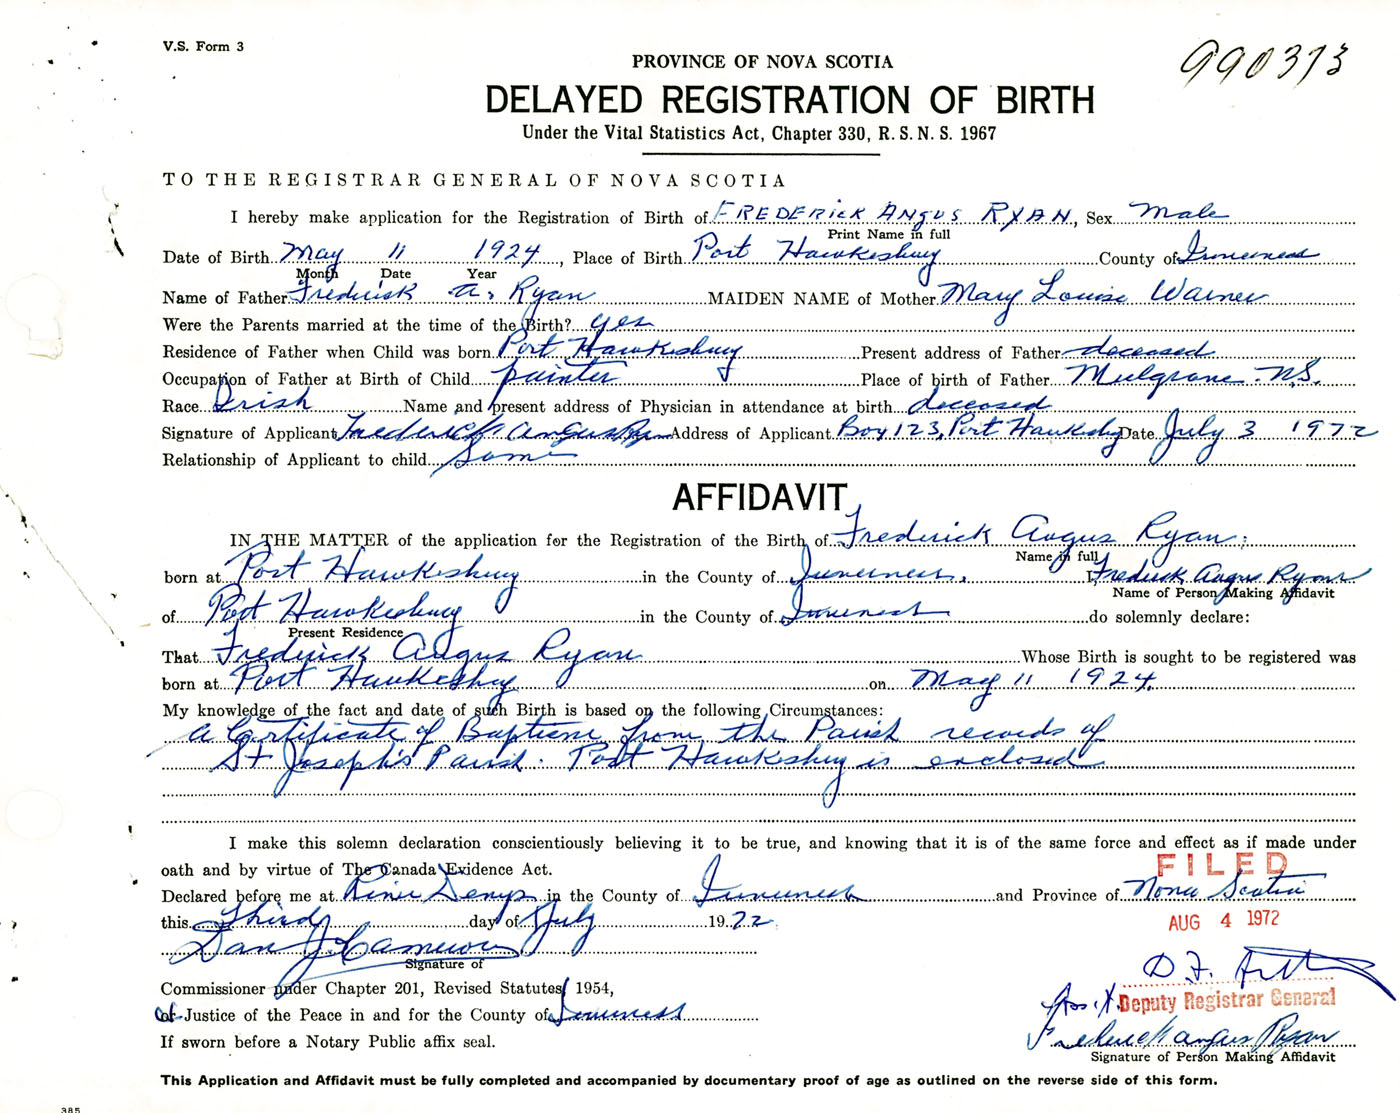 V.S. Form 3
990313
PROVINCE OF NOVA SCOTIA
DELAYED REGISTRATION OF BIRTH
Under the Vital Statistics Act, Chapter 330, R. S. N. S. 1967
TO THE REGISTRAR GENERAL OF NOVA SCOTIA
I hereby make application for the Registration of Birth of FREDERICK ANGUS RYAN, Sex Male
Print Name in full
Date of Birth May 11 1924, Place of Birth Port Hawkesbury County of Inverness
Month Date Year
Name of Father Frederick A. Ryan MAIDEN NAME of Mother Mary Louise Warner
Were the Parents married at the time of the Birth? yes
Residence of Father when Child was born Port Hawkesbury Present address of Father deceased
Occupation of Father at Birth of Child painter Place of birth of Father Mulgrave N.S.
Race Irish Name and present address of Physician in attendance at birth deceased
Signature of Applicant Frederick Angus Ryan Address of Applicant Box 123, Port Hawkesby Date July 3 1972
Relationship of Applicant to child Same
AFFIDAVIT
IN THE MATTER of the application for the Registration of the Birth of Frederick Angus Ryan;
Name in full
born at Port Hawkesbury in the County of Inverness, I, Frederick Angus Ryan
Name of Person Making Affidavit
of Port Hawkesbury in the County of Inverness do solemnly declare:
Present Residence
That Frederick Angus Ryan Whose Birth is sought to be registered was
born at Port Hawkesbury on May 11 1924.
My knowledge of the fact and date of such Birth is based on the following Circumstances:
A Certificate of Baptism from the Parish records of
St Joseph's Parish. Port Hawkesbury is enclosed
I make this solemn declaration conscientiously believing it to be true, and knowing that it is of the same force and effect as if made under
oath and by virtue of The Canada Evidence Act.
FILED
Declared before me at River Denys in the County of Inverness and Province of Nova Scotia
this Third day of July 1972.
AUG 4 1972
Dan J. Cameron
Signature of
D. F.
Commissioner under Chapter 201, Revised Statutes 1954,
Deputy Registrar General
or Justice of the Peace in and for the County of Inverness
Frederick Angus Ryan
If sworn before a Notary Public affix seal.
Signature of Person Making Affidavit
This Application and Affidavit must be fully completed and accompanied by documentary proof of age as outlined on the reverse side of this form.
385